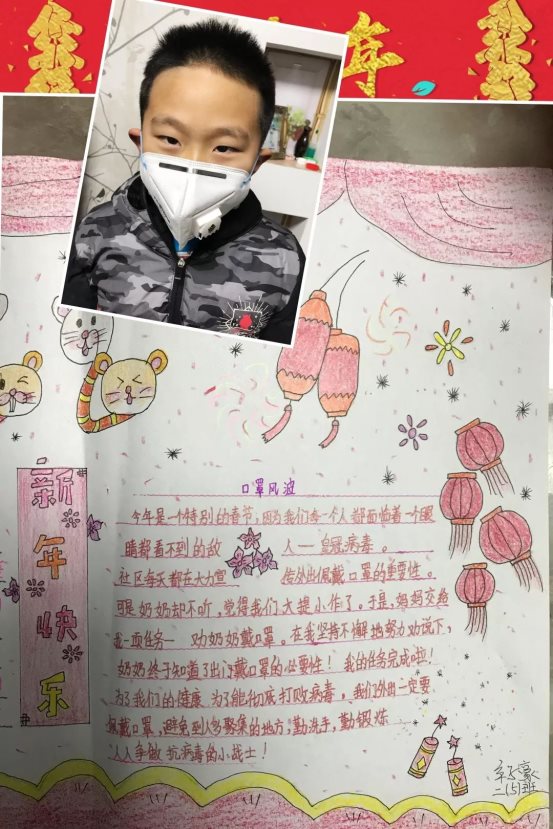 年
新年快乐
口罩风波
今年是一个特别的春节,因为我们每一个人都面临着一个眼
睛都看不到的敌人——皇冠病毒。
社区每天都在大力宣传外出佩戴口罩的重要性。
可是奶奶却不听,觉得我们大提小作了。于是,妈妈交给
我一项任务——劝奶奶戴口罩。在我坚持不懈地努力劝说下,
奶奶终于知道了出门戴口罩的必要性!我的任务完成啦!
为了我们的健康 为了能彻底打败病毒。我们外出一定要
佩戴口罩,避免到人多聚集的地方,勤洗手,勤锻炼
人人争做抗病毒的小战士!
二(5)班